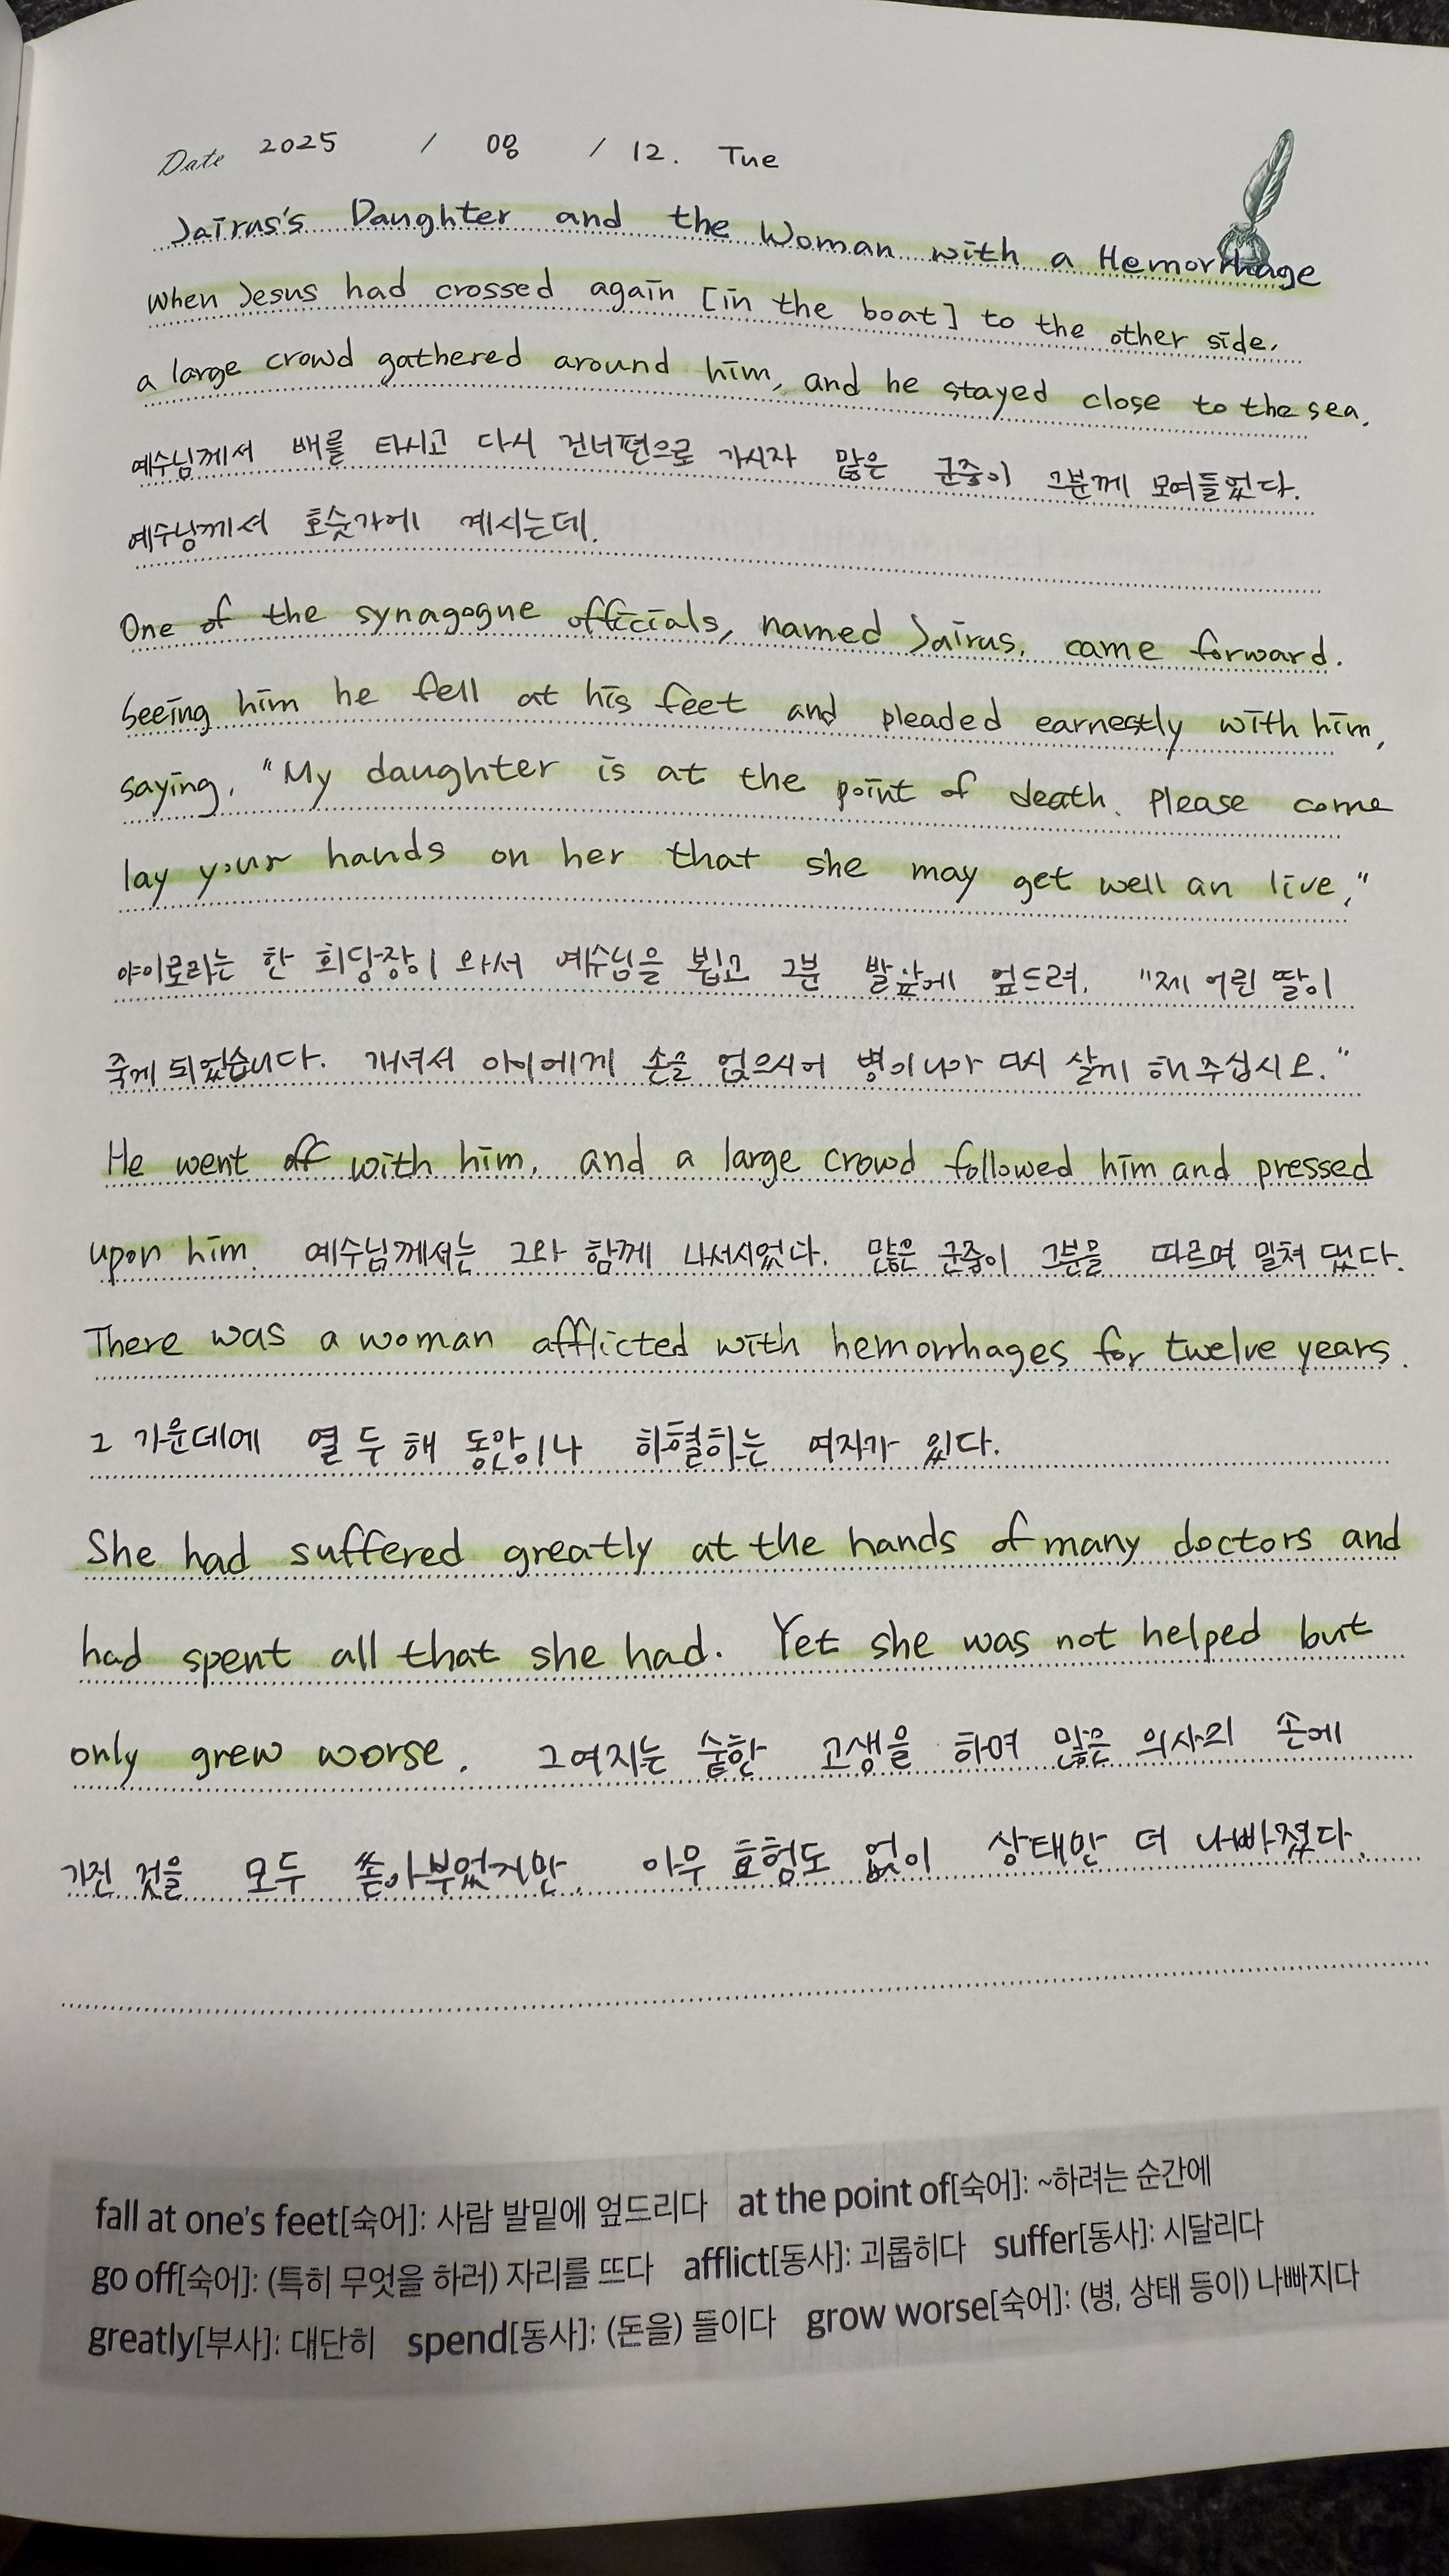 Date 2025 / 08 / 12. Tue
Jairus's Daughter and the Woman with a Hemorrhage
When Jesus had crossed again [in the boat] to the other side.
a large crowd gathered around him, and he stayed close to the sea.
예수님께서 배를 타시고 다시 건너편으로 가시자 많은 군중이 그분께 모여들었다.
예수님께서 호숫가에 계시는데.
One of the synagogue officials, named Jairus, came forward.
Seeing him he fell at his feet and pleaded earnestly with him,
saying, "My daughter is at the point of death. Please come
lay your hands on her that she may get well an live,"
야이로라는 한 회당장이 와서 예수님을 뵙고 그분 발앞에 엎드려, "제 어린 딸이
죽게 되었습니다. 가셔서 아이에게 손을 얹으시어 병이 나아 다시 살게 해 주십시오."
He went off with him, and a large crowd followed him and pressed
upon him. 예수님께서는 그와 함께 나서시었다. 많은 군중이 그분을 따르며 밀쳐 댔다.
There was a woman afflicted with hemorrhages for twelve years.
그 가운데에 열 두 해 동안이나 하혈하는 여자가 있다.
She had suffered greatly at the hands of many doctors and
had spent all that she had. Yet she was not helped but
only grew worse. 그여자는 숱한 고생을 하며 많은 의사의 손에
가진 것을 모두 쏟아부었지만, 아무 효험도 없이 상태만 더 나빠졌다.
fall at one's feet[숙어]: 사람 발밑에 엎드리다 at the point of[숙어]: ~하려는 순간에
go off[숙어]: (특히 무엇을 하러) 자리를 뜨다 afflict[동사]: 괴롭히다 suffer[동사]: 시달리다
greatly[부사]: 대단히 spend[동사]: (돈을) 들이다 grow worse[숙어]: (병, 상태 등이) 나빠지다